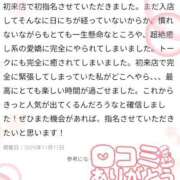 初来店で初指名させていただきました。まだ入店
してそんなに日にちが経っていないからか、慣れ
ないながらもとっても一生懸命なところや、超絶癒
し系の愛嬌に完全にやられてしまいました。トー
クにも完全に癒されてしまいました。初来店で完
全に緊張してしまっていた私がどこへやら、、、最
高にとても楽しい時間が過ごせました。これから
きっと人気が出てくるんだろうなと確信しまし
た！ぜひまた機会があれば、指名させていただき
たいと思います！
掲載日：2025年11月12日
参考にな
口コミ
ありがとう